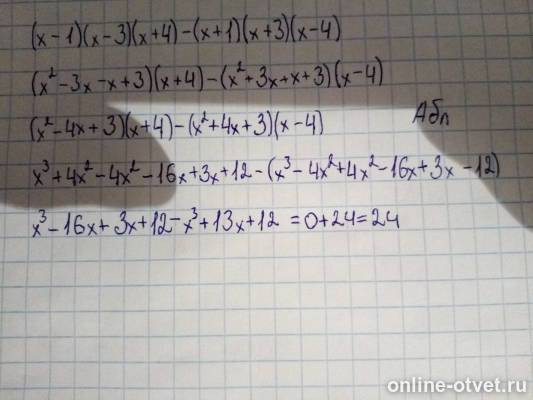 (x-1)(x-3)(x+4)-(x+1)(x+3)(x-4)
(x²-3x-x+3)(x+4)-(x²+3x+x+3)(x-4)
Абп
(x²-4x+3)(x+4)-(x²+4x+3)(x-4)
x³+4x²-4x²-16x+3x+12-(x³-4x²+4x²-16x+3x-12)
x³-16x+3x+12-x³+13x+12 =0+24=24
online-otvet.ru